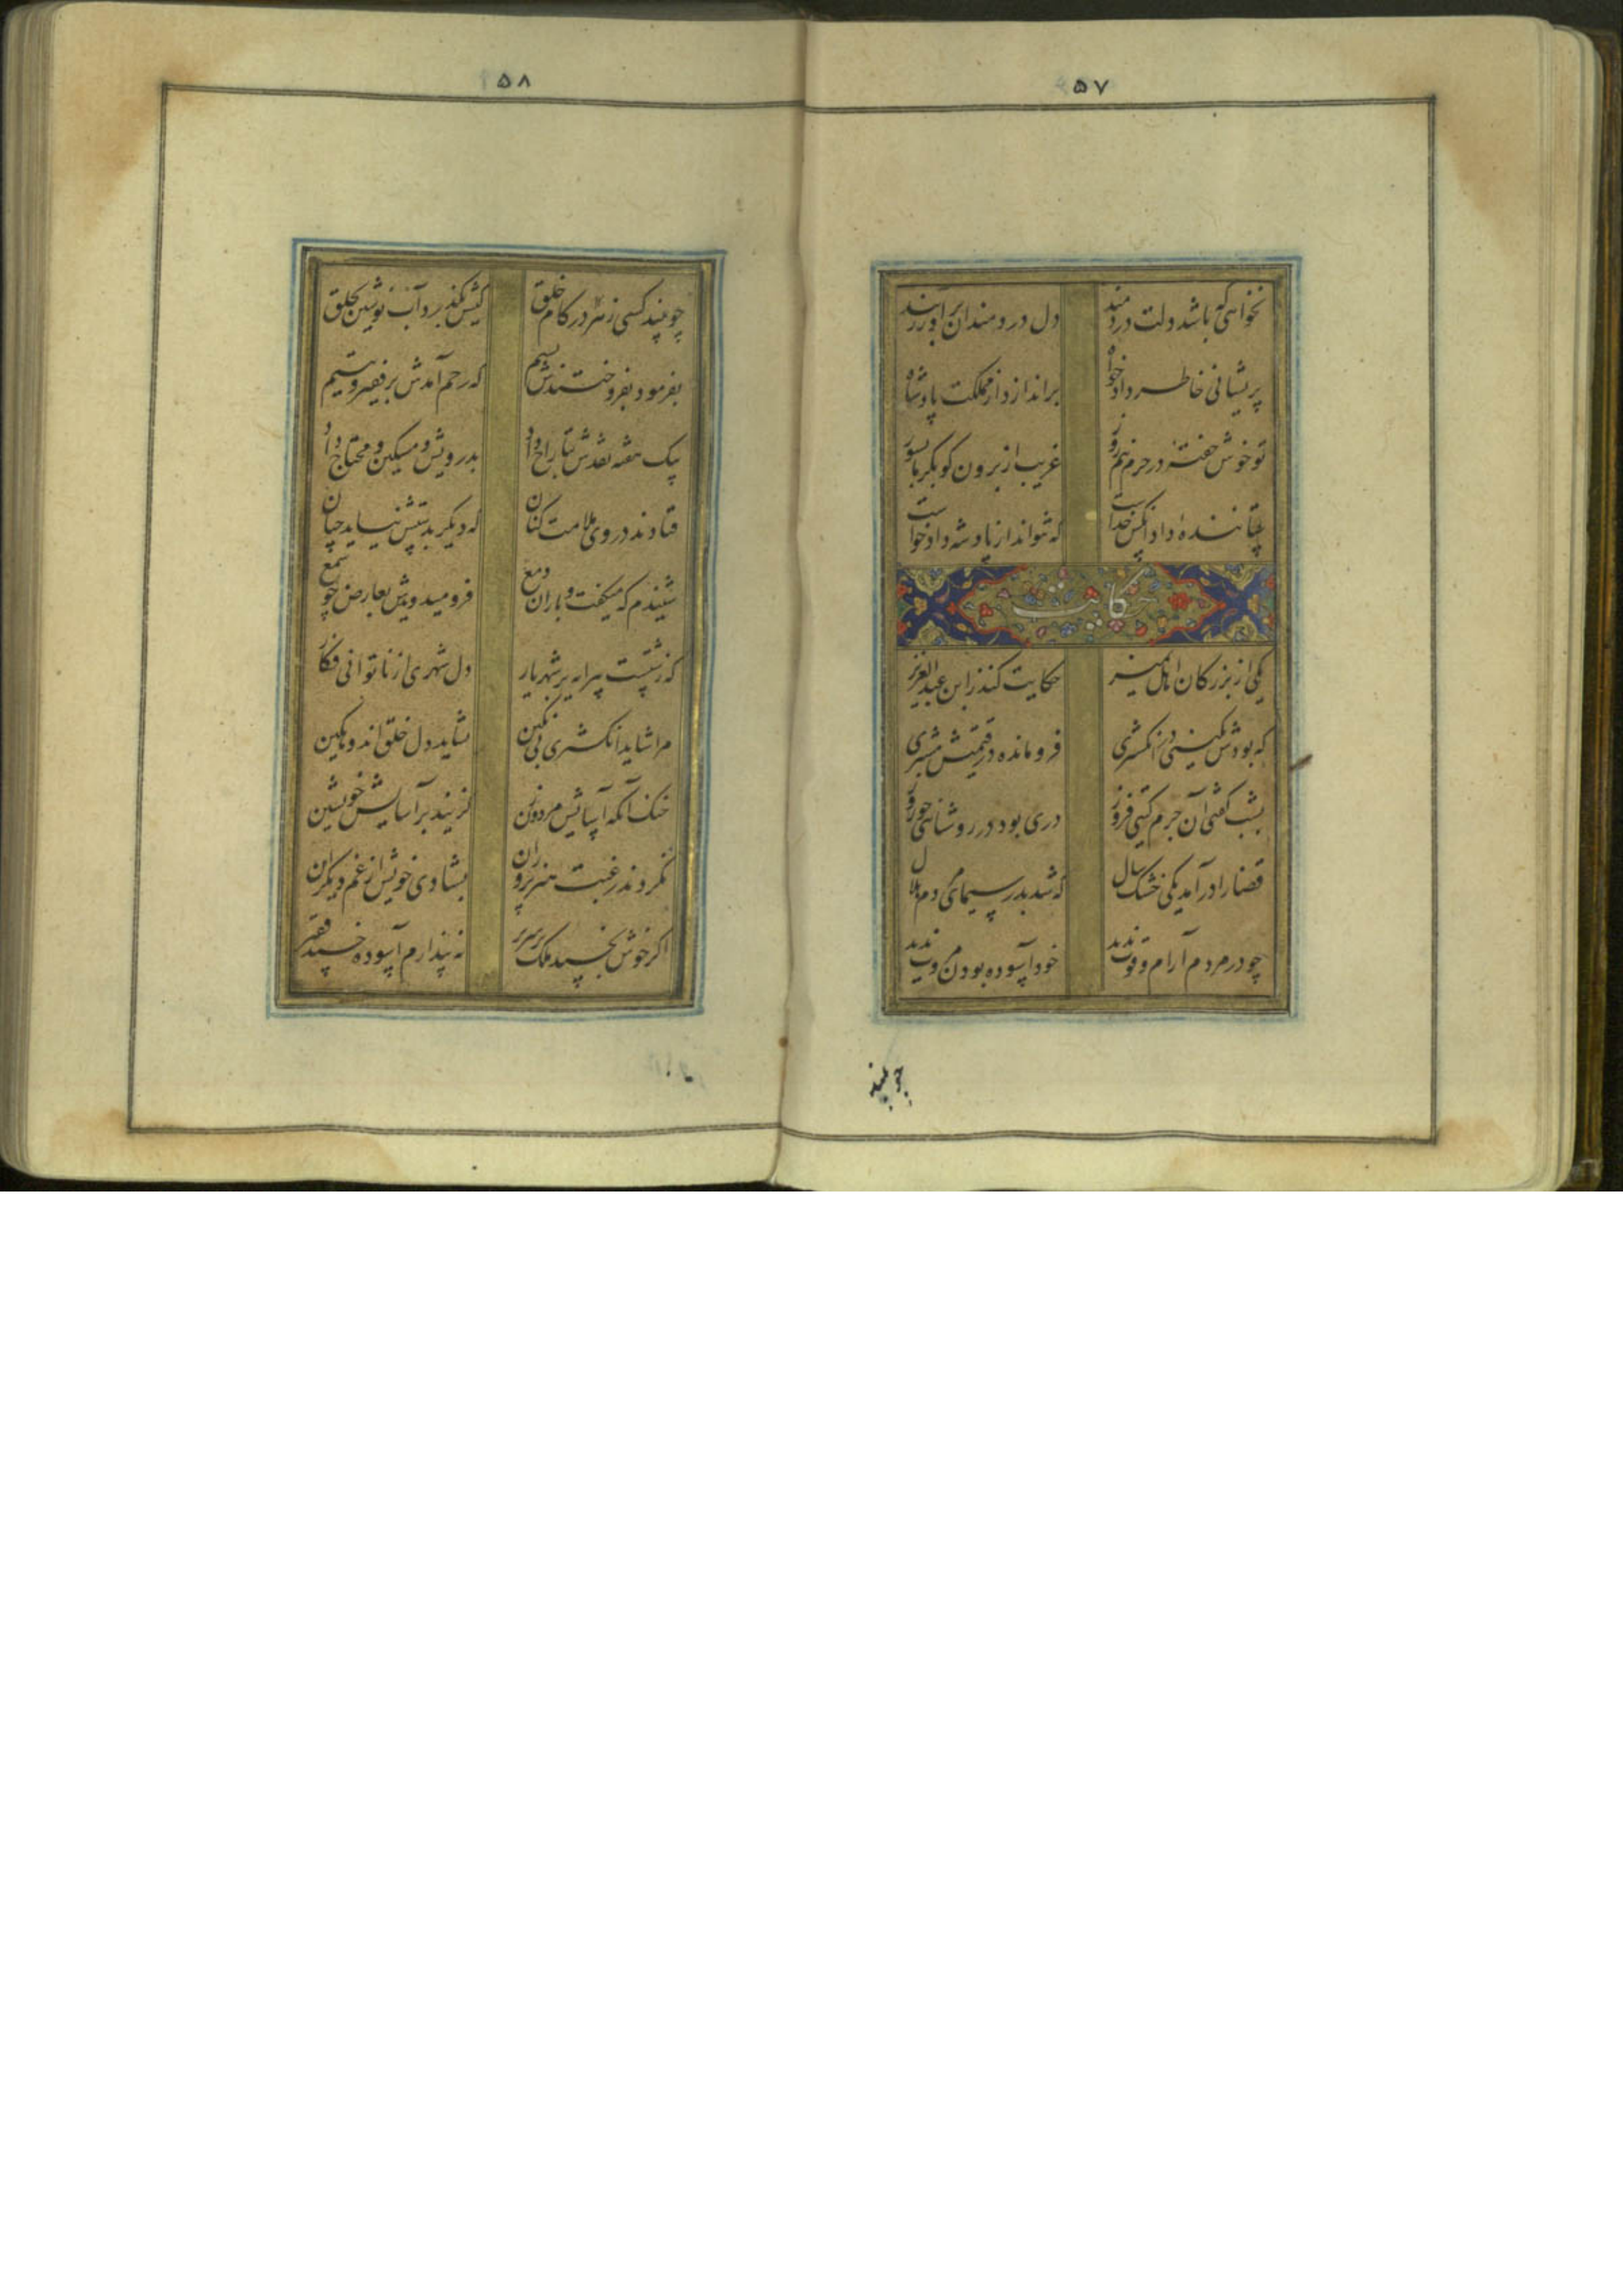 ۵۷
نخواهی که باشد دلت دردمند دل دردمندان برآور ز بند
پریشانی خاطر دادخواه براندازد از مملکت پادشاه
تو خوش خفته در حرم نیم روز غریب از برون گو بگرما بسوز
ستاننده داد آنکس خداست که نتواند از پادشه داد خواست
حکایت
یکی از بزرگان اهل تمیز حکایت کند ز ابن عبدالعزیز
که بودش نگینی در انگشتری فرومانده در قیمتش مشتری
بشب گفتی آن جرم گیتی فروز دری بود در روشنائی چو روز
قضا را درآمد یکی خشک سال که شد بدر سیمای مردم هلال
چو در مردم آرام و قوت ندید خود آسوده بودن مروت ندید
چو بیند
۵۸
چو بیند کسی زهر در کام خلق کیش بگذرد آب نوشین بحلق
بفرمود بفروختندش بسیم که رحم آمدش بر فقیر و یتیم
بیک هفته نقدش بتاراج داد بدرویش و مسکین و محتاج داد
فتادند در وی ملامت کنان که دیگر بدستش نیاید چنان
شنیدم که میگفت و باران دمع فرو میدویدش بعارض چو شمع
که زشتست پیرایه بر شهریار دل شهری از ناتوانی فکار
مرا شاید انگشتری بی نگین نشاید دل خلق اندوهگین
خنک آنکه آسایش مرد و زن گزیند بر آسایش خویشتن
نکردند رغبت هنرپروران بشادی خویش از غم دیگران
اگر خوش بخسبد ملک بر سریر نه پندارم آسوده خسبد فقیر